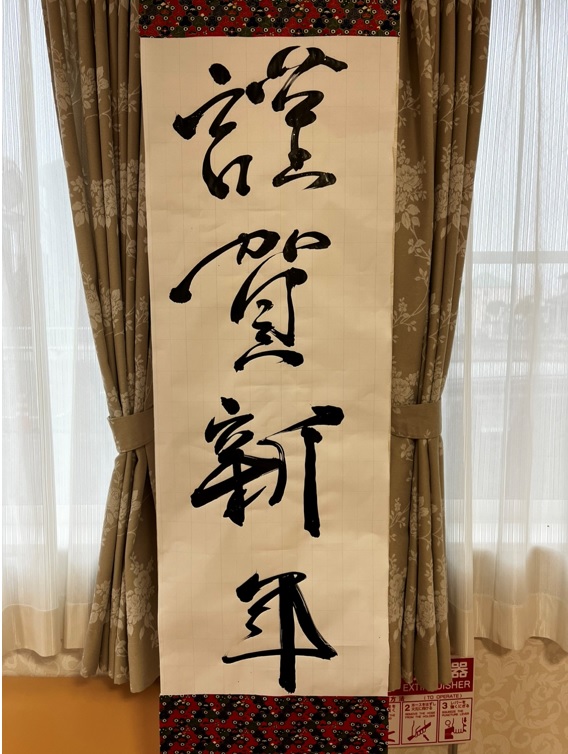 謹賀新年
器
EXTINGUISHER
(TO OPERATE)
2
3